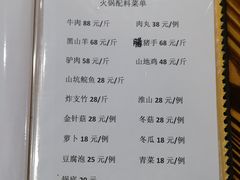 火锅配料菜单
牛肉 88 元/斤 肉丸 38 元/例
黑山羊 68 元/斤 猪手 68 元/斤
驴肉 58 元/斤 山地鸡 48 元/斤
山坑鲩鱼 28 元/斤
炸支竹 28/斤 淮山 28 元/斤
金针菇 28 元/例 冬菇 28 元/例
萝卜 18 元/例 冬瓜 18 元/例
豆腐泡 25 元/例 青菜 18 元/例
锅底 20 元